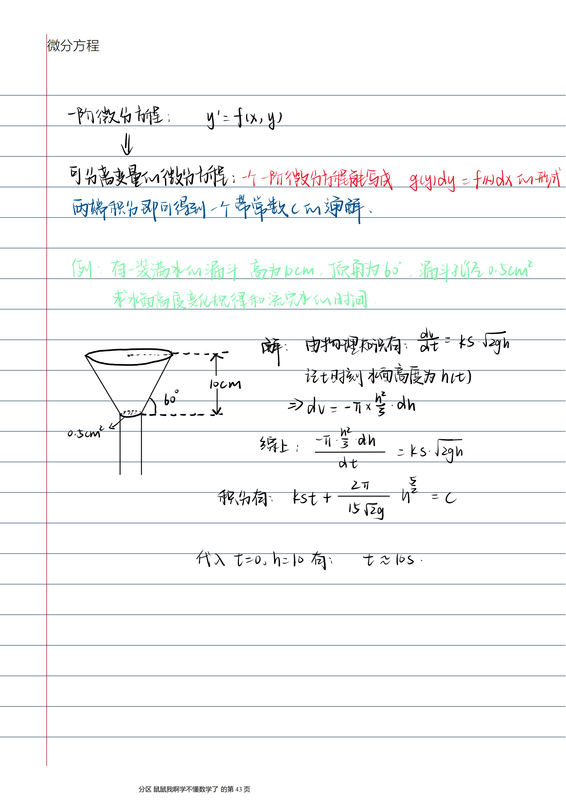 微分方程
一阶微分方程: y' = f(x, y)
⇓
可分离变量的微分方程: 一个一阶微分方程能写成 g(y)dy = f(x)dx 的形式
两端积分即可得到一个带常数C的通解.
例: 有一装满水的漏斗 高为10cm, 顶角为60°, 漏斗孔径0.5cm²
求水面高度变化规律和流完水的时间
10cm
60°
0.5cm²
解: 由物理知识有: dv/dt = ks·√2gh
记t时刻水面高度为h(t)
⇒ dv = -π × h²/3 · dh
综上: (-π · h²/3 dh)/dt = ks·√2gh
积分有: kst + 2π/(15√2g) h^(5/2) = C
代入 t=0, h=10 有: t ≈ 10s.
分区 鼠鼠我啊学不懂数学了 的第 43 页